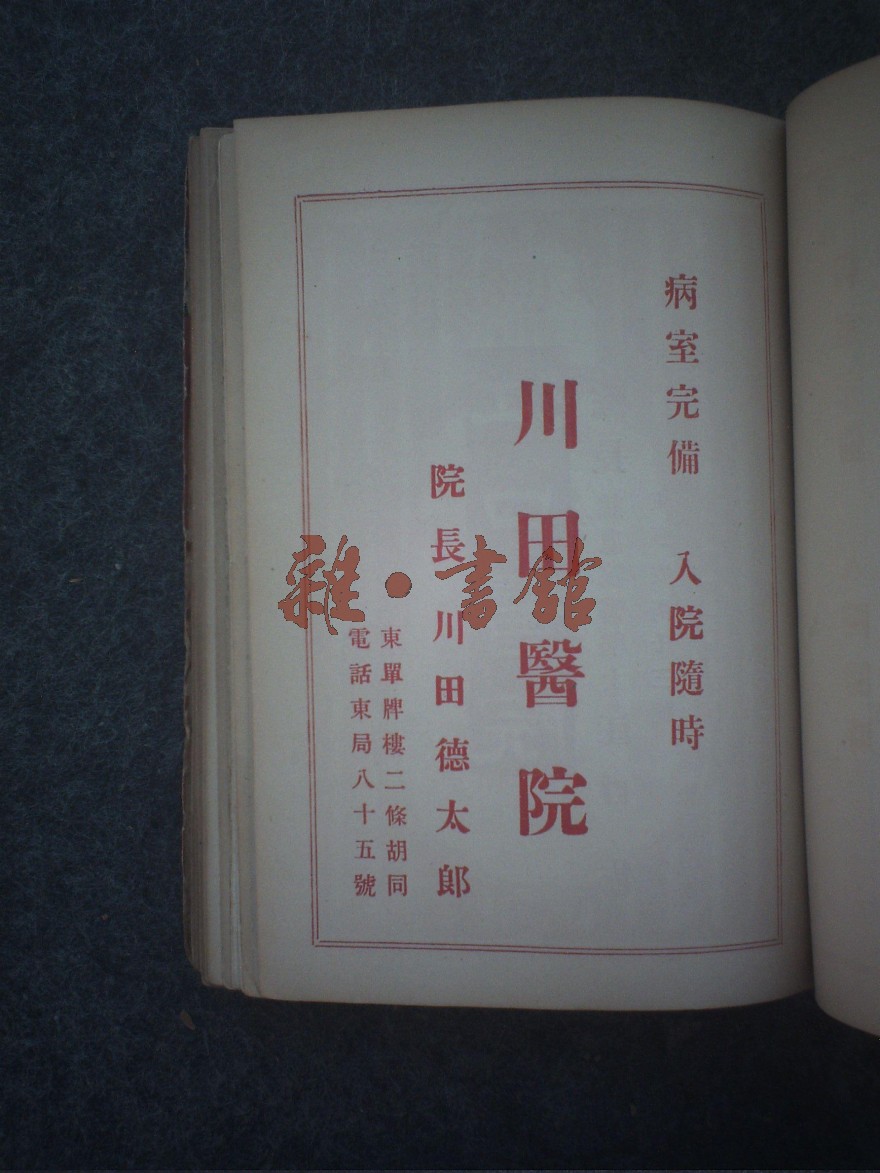 病室完備 入院隨時
川田醫院
院長 川田德太郎
東單牌樓二條胡同
電話東局八十五號
雜·書館